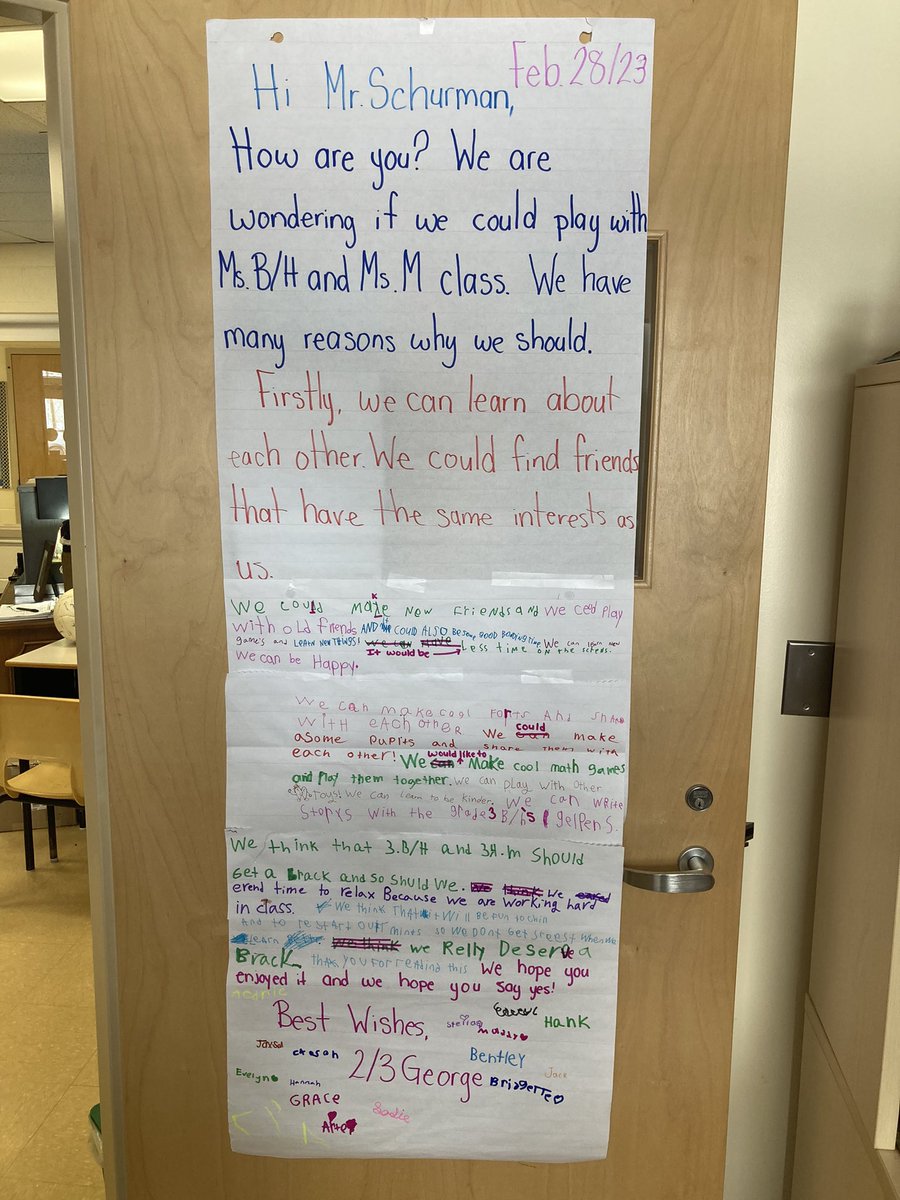 Feb. 28/23
Hi Mr. Schurman,
How are you? We are
wondering if we could play with
Ms. B/H and Ms. M class. We have
many reasons why we should.
Firstly, we can learn about
each other. We could find friends
that have the same interests as
us.
We could make New Friends and We coed PLAY
With old friends AND COULD ALSO be some GOOD
games and LEARN NEW THINGS! We can have It would be Less time ON the screens. We can learn new
We can be Happy.
We can make cool Forts And share
With eAch other We can could make
asome pupits and share them with
each other! We can would like to Make cool math games
and Play them together. We can play with other
Toys! We can Learn to be Kinder. We can write
Storys with the grade 3 B/h's gelpens.
We think that 3.B/H and 3A.m Should
Get a Brack and so Shuld We. We
erend time to relax Because we are working hard
in class. We think THAt it Will Be fun to chin
And to restart OUR minds so We Dont Get sreest when we
Learn We think we Relly Deserve a
Brack thank you For reading this We hope you
enjoyed it and we hope you say yes!
Best Wishes,
Stella
Maddy
Hank
Jaxson
Bentley
Jack
Evelyn
Hannah
2/3 George
Bridgette
GRACE
Sadie